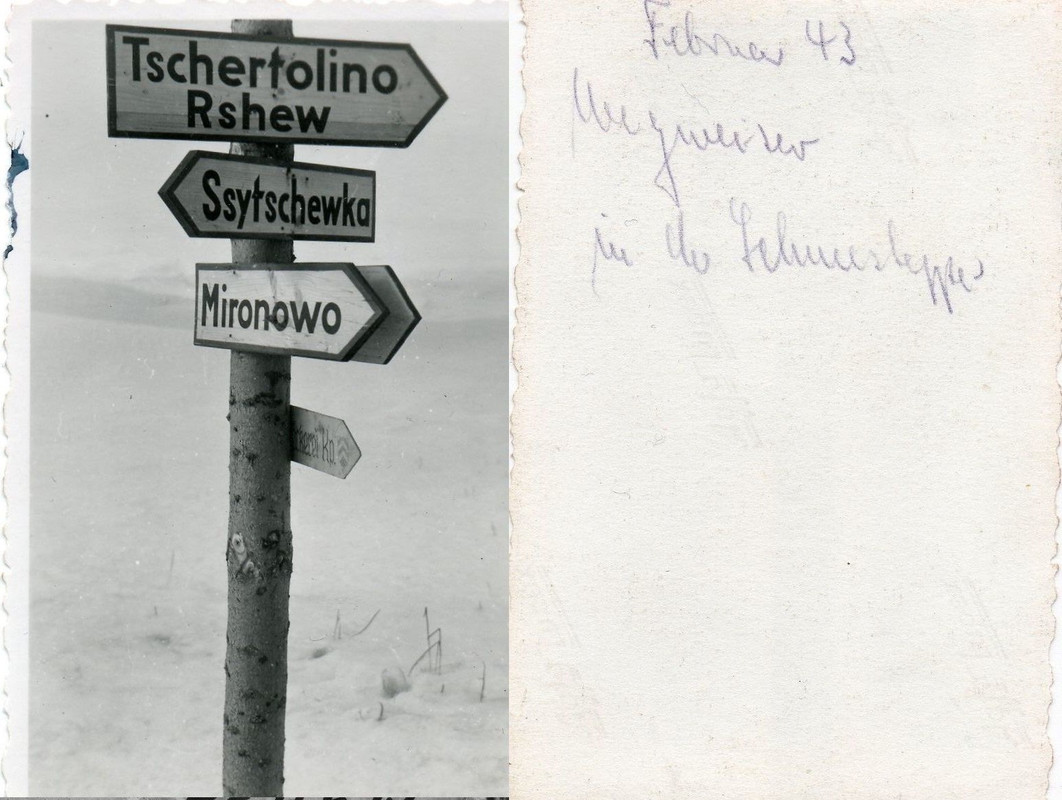 Tschertolino
Rshew
Ssytschewka
Mironowo
Kp.
Februar 43
Wegweiser
in der Schneesteppe